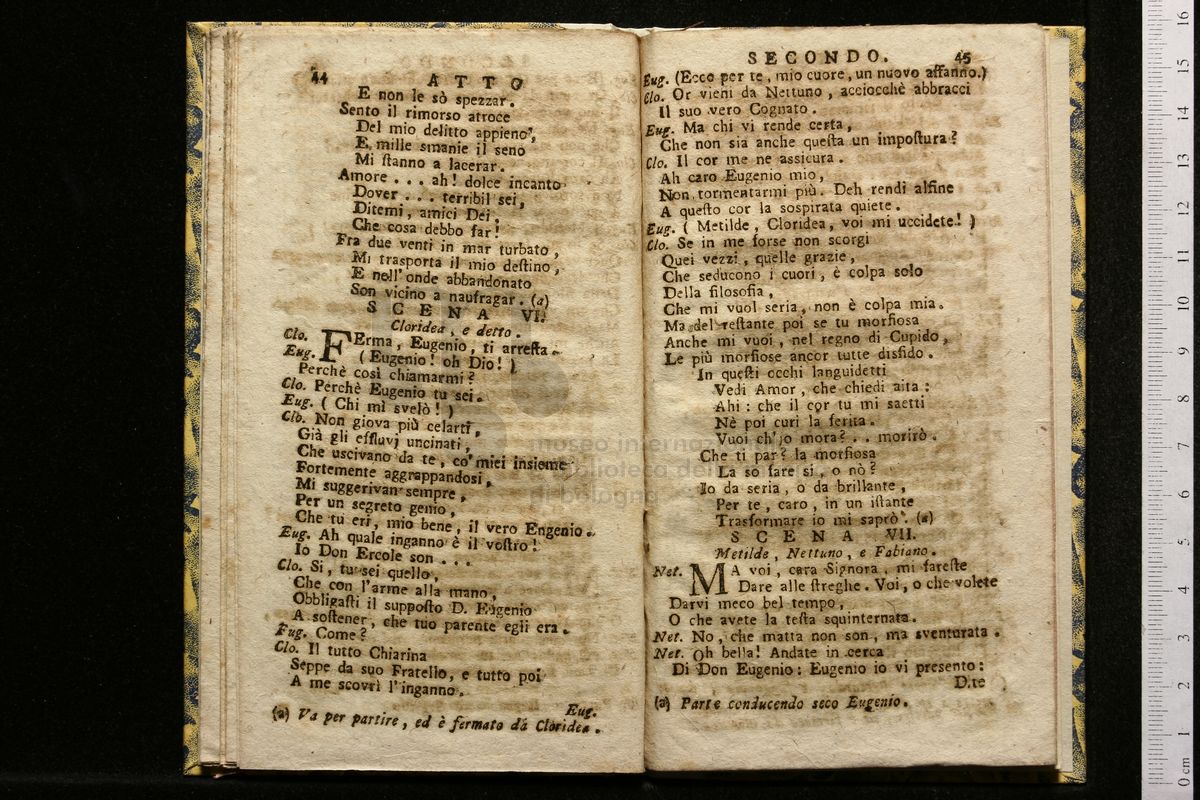 44
ATTO
E non le sò spezzar.
Sento il rimorso atroce
Del mio delitto appieno,
E mille smanie il seno
Mi ſtanno a lacerar.
Amore . . . ah! dolce incanto
Dover . . . terribil sei,
Ditemi, amici Dei,
Che cosa debbo far!
Fra due venti in mar turbato,
Mi trasporta il mio deſtino,
E nell'onde abbandonato
Son vicino a naufragar. (a)
SCENA VI.
Cloridea, e detto.
Clo. FErma, Eugenio, ti arreſta.
Eug. (Eugenio! oh Dio!)
Perchè così chiamarmi?
Clo. Perchè Eugenio tu sei.
Eug. (Chi mi svelò!)
Clo. Non giova più celarti,
Già gli effluvj uncinati,
Che uscivano da te, co' miei insieme
Fortemente aggrappandosi,
Mi suggerivan sempre,
Per un segreto genio,
Che tu eri, mio bene, il vero Engenio.
Eug. Ah quale inganno è il voſtro!
Io Don Ercole son . . .
Clo. Si, tu sei quello,
Che con l'arme alla mano,
Obbligaſti il suppoſto D. Eugenio
A soſtener, che tuo parente egli era.
Eug. Come?
Clo. Il tutto Chiarina
Seppe da suo Fratello, e tutto poi
A me scovrì l'inganno.
Eug.
(a) Va per partire, ed è fermato da Cloridea.
SECONDO.
45
Eug. (Ecco per te, mio cuore, un nuovo affanno.)
Clo. Or vieni da Nettuno, acciocchè abbracci
Il suo vero Cognato.
Eug. Ma chi vi rende certa,
Che non sia anche queſta un impoſtura?
Clo. Il cor me ne assicura.
Ah caro Eugenio mio,
Non tormentarmi più. Deh rendi alfine
A queſto cor la sospirata quiete.
Eug. (Metilde, Cloridea, voi mi uccidete!)
Clo. Se in me forse non scorgi
Quei vezzi, quelle grazie,
Che seducono i cuori, è colpa solo
Della filosofia,
Che mi vuol seria, non è colpa mia.
Ma del reſtante poi se tu morfiosa
Anche mi vuoi, nel regno di Cupido,
Le più morfiose ancor tutte disfido.
In queſti occhi languidetti
Vedi Amor, che chiedi aita:
Ahi: che il cor tu mi saetti
Nè poi curi la ferita.
Vuoi ch'jo mora? . . morirò.
Che ti par? la morfiosa
La so fare si, o nò?
Io da seria, o da brillante,
Per te, caro, in un iſtante
Trasformare io mi saprò. (a)
SCENA VII.
Metilde, Nettuno, e Fabiano.
Net. MA voi, cara Signora, mi fareſte
Dare alle ſtreghe. Voi, o che volete
Darvi meco bel tempo,
O che avete la teſta squinternata.
Net. No, che matta non son, ma sventurata.
Net. Oh bella! Andate in cerca
Di Don Eugenio: Eugenio io vi presento:
D.te
(a) Parte conducendo seco Eugenio.
museo internazionale
biblioteca della
di bologna
16
15
14
13
12
11
10
9
8
7
6
5
4
3
2
1
0 cm